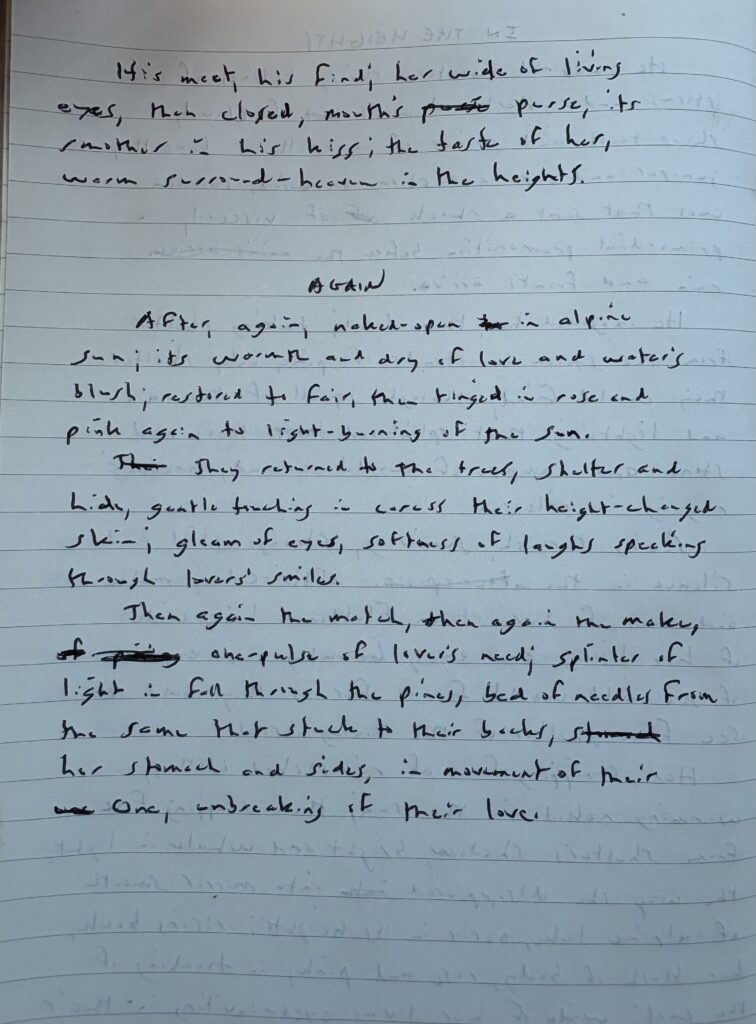 It's meet, his find; her wide of living
eyes, then closed, mouth's purse, its
smother in his kiss; the taste of her,
warm surround-heaven in the heights.
AGAIN
After, again, naked-open in alpine
sun; its warmth and dry of love and water's
blush; restored to fair, then tinged in rose and
pink again to light-burning of the sun.
They returned to the trees, shelter and
hide, gentle touching in caress their height-changed
skin; gleam of eyes, softness of laughs speaking
through lovers' smiles.
Then again the match, then again the make,
one-pulse of lover's need; splinter of
light in fall through the pines, bed of needles from
the same that stuck to their backs,
her stomach and sides, in movement of their
One, unbreaking of their love.